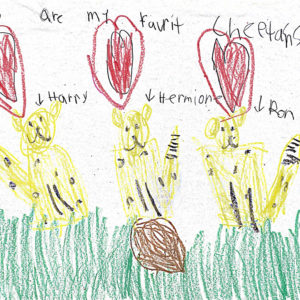 are my favrit cheetahs
Harry
Hermione
Ron